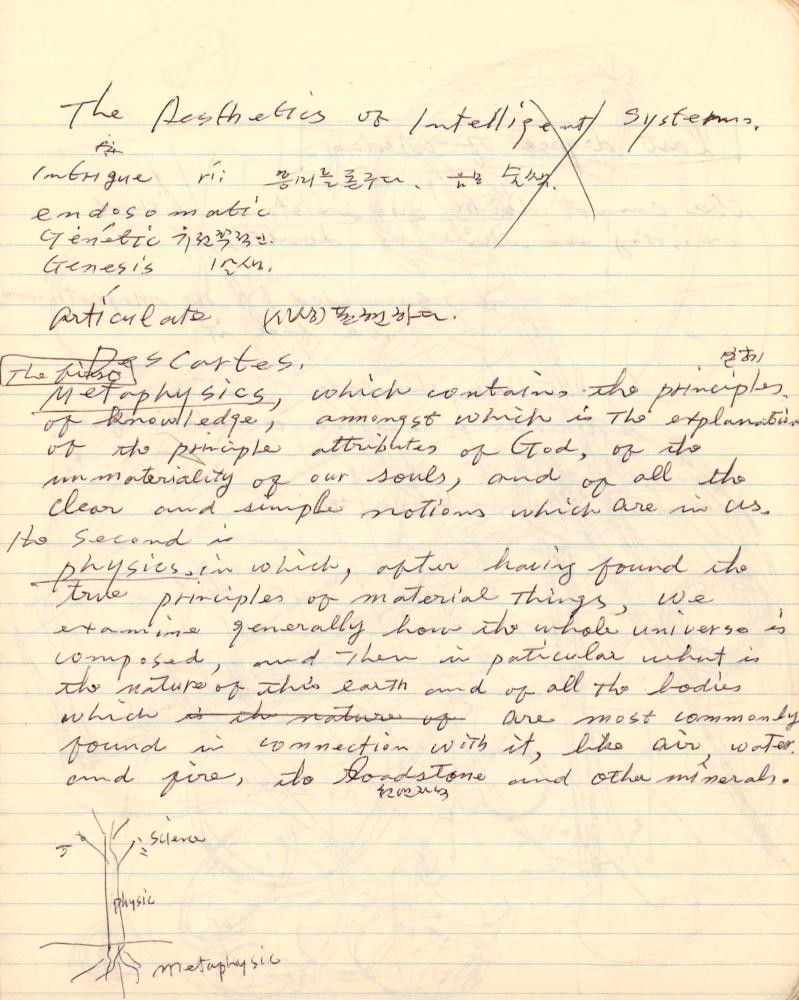 The Aesthetics of Intelligent Systems.
Intrigue rí: 흥미를 돋구다. 음모
endosomatic
Génétic 유전학적인.
Genesis 발생.
articulate (사상) 표현하다.
DesCartes.
The first
Metaphysics, which contains the principles
of knowledge, amongst which is The explanation
of the principle attributes of God, of the
immateriality of our souls, and of all the
clear and simple notions which are in us.
the second is
physics, in which, after having found the
true principles of material Things, we
examine generally how the whole universe is
composed, and Then in paticular what is
the nature of this earth and of all The bodies
which is the nature of are most commonly
found in connection with it, like air, water
and fire, the loadstone and other minerals.
천연자석
Science
physic
metaphysic